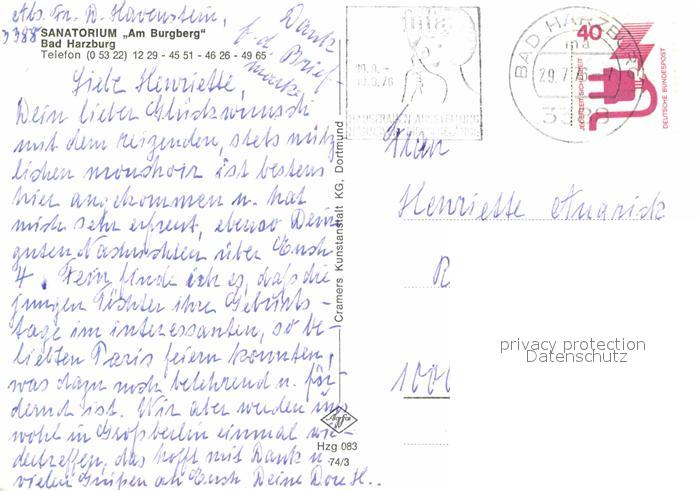 Abs. Fr. D. Havenstein,
3388
SANATORIUM „Am Burgberg"
Bad Harzburg
Telefon (0 53 22) 12 29 - 45 51 - 46 26 - 49 65
Dank
f. d. Brief-
marke
Liebe Henriette,
Dein lieber Glückwunsch
mit dem reizenden, stets nütz-
lichen mouchoir ist bestens
hier angekommen u. hat
mich sehr erfreut, ebenso Deine
guten Nachrichten über Euch
4. Fein finde ich es, daß die
jungen Töchter ihre Geburts-
tage im interessanten, so be-
liebten Paris feiern konnten,
was dazu noch belehrend u. för-
dernd ist. Wir aber werden uns
wohl in Großberlin einmal wie-
dertreffen, das hofft mit Dank u.
vielen Grüßen an Euch Deine Dore H..
Cramers Kunstanstalt KG, Dortmund
Agfa
Hzg 083
74/3
BAD HARZBURG
ma
29.7.76
3388
40
JEDERZEIT SICHERHEIT
DEUTSCHE BUNDESPOST
Frau
Henriette
R
1000
privacy protection
Datenschutz